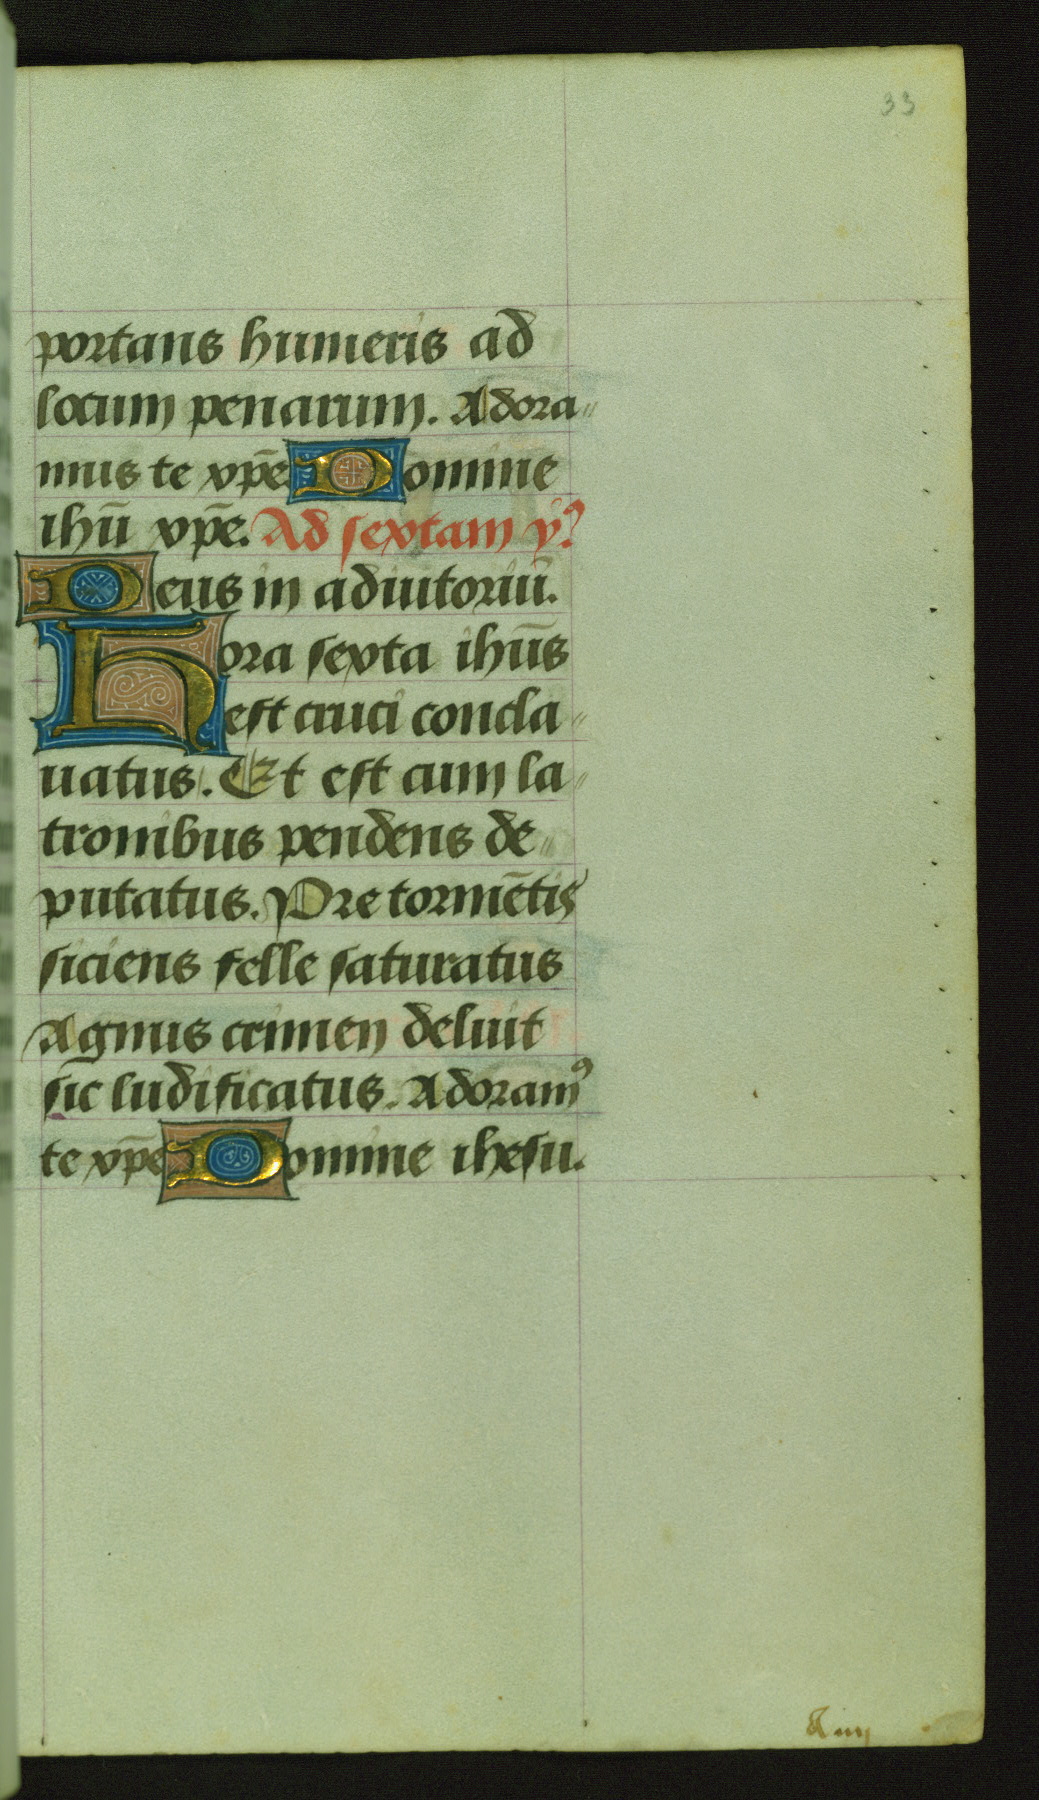 33
portans humeris ad
locum penarum. Adora〃
mus te xp̄e Domine
ihū xp̄e. Ad sextam ẏꝰ
Deus in adiutoriū.
Hora sexta ihūs
est cruci concla〃
uatus. Et est cum la〃
tronibus pendens de〃
putatus. Pre tormētis
siciens felle saturatus
Agnus crimen deluit
sic ludificatus. Adoramꝰ
te xp̄e Domine ihesu.